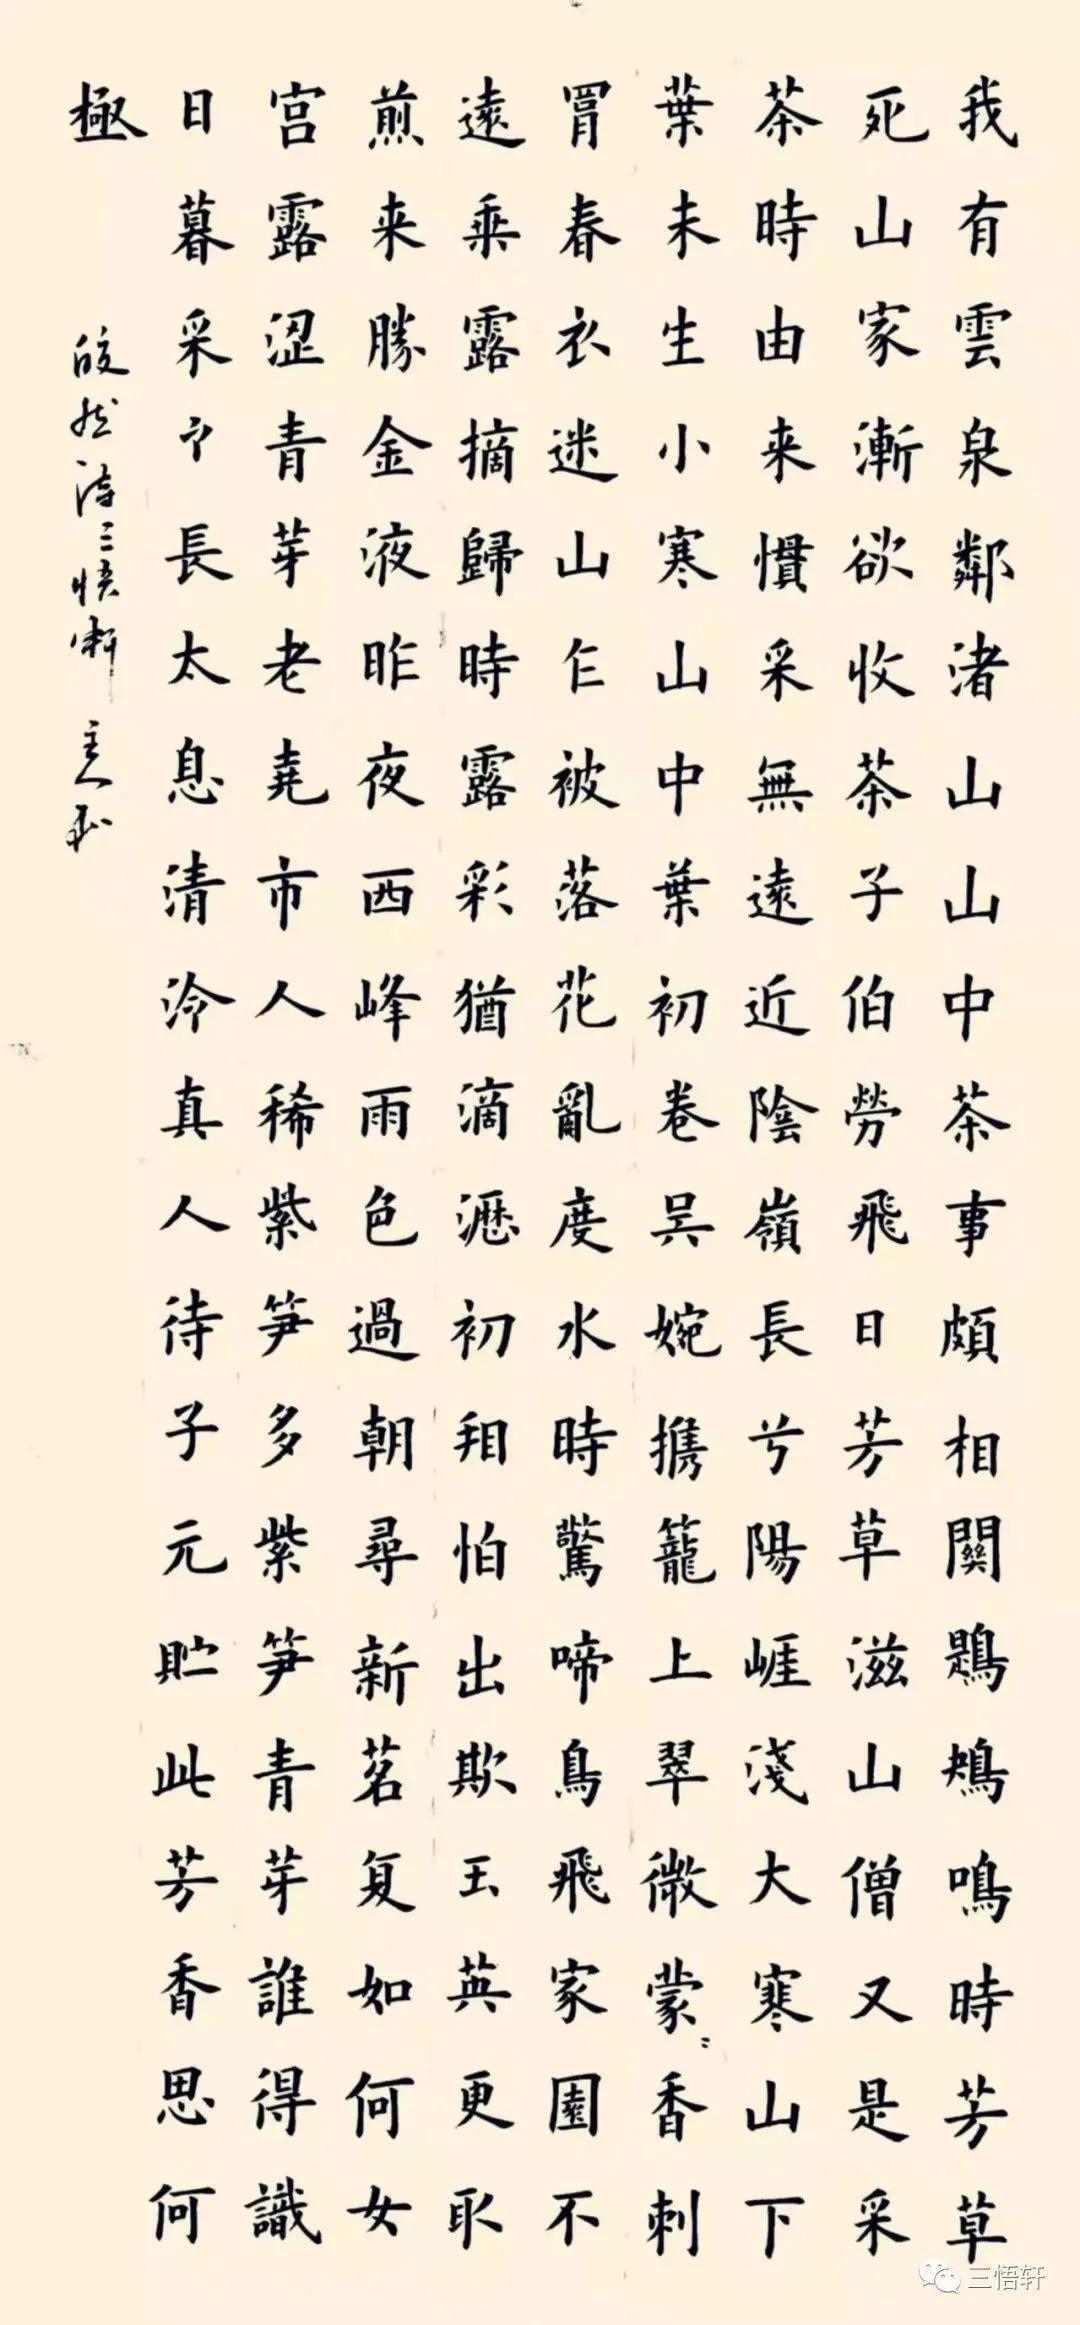 我有雲泉鄰渚山山中茶事頗相關鶗鴂鳴時芳草
死山家漸欲收茶子伯勞飛日芳草滋山僧又是采
茶時由来慣采無遠近陰嶺長兮陽崕淺大寒山下
葉未生小寒山中葉初卷吴婉攜籠上翠微蒙〻香刺
罥春衣迷山乍被落花亂度水時驚啼鳥飛家園不
遠乘露摘歸時露彩猶滴瀝初看怕出欺玉英更取
煎来勝金液昨夜西峰雨色過朝尋新茗复如何女
宫露涩青芽老堯市人稀紫笋多紫笋青芽誰得識
日暮采之長太息清泠真人待子元貯此芳香思何
極
皎然詩三悟軒主人書
三悟轩